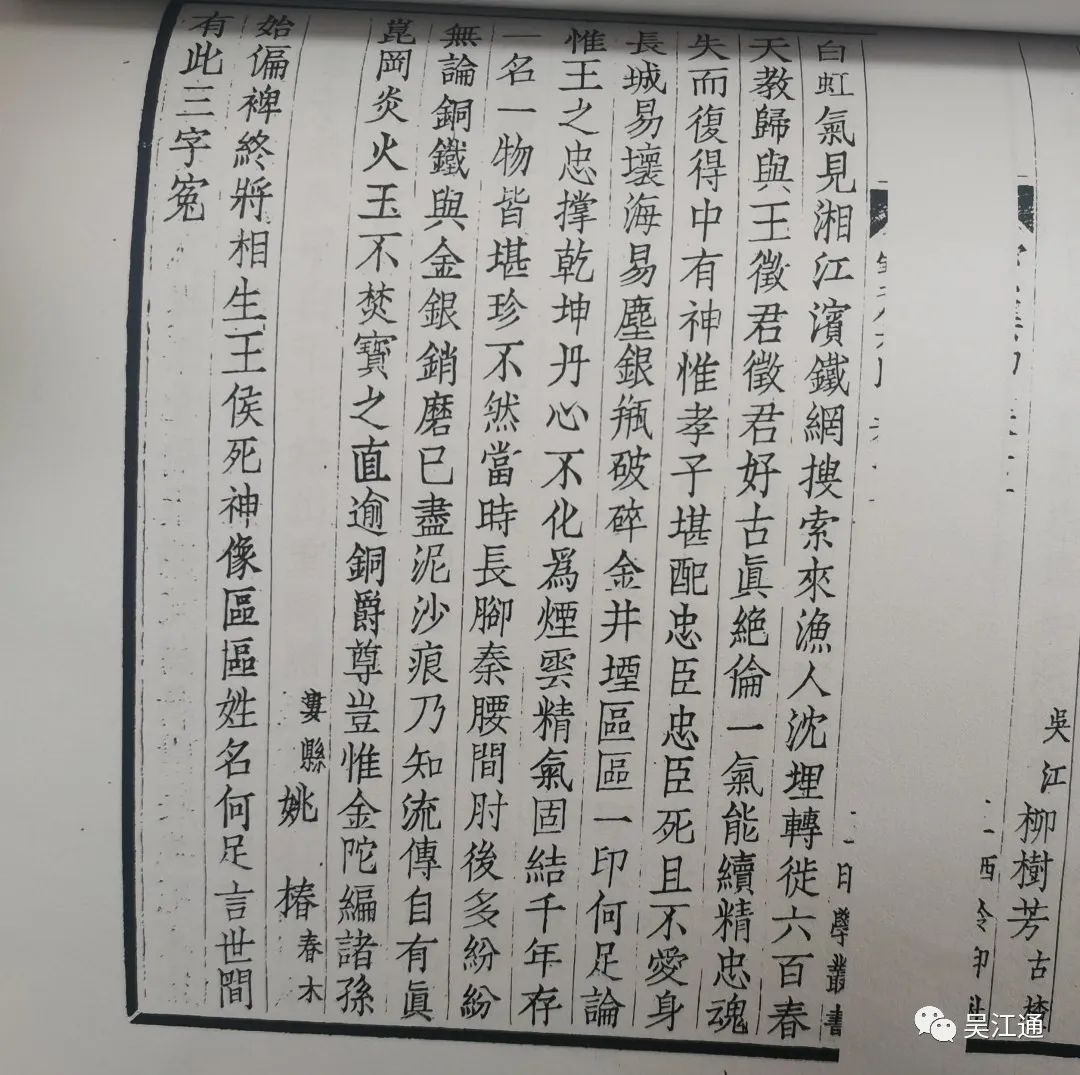 吳江柳樹芳古楂
白虹氣見湘江濱鐵網搜索來漁人沈埋轉徙六百春
天教歸與王徵君徵君好古眞絶倫一氣能續精忠魂
失而復得中有神惟孝子堪配忠臣忠臣死且不愛身
長城易壞海易塵銀瓶破碎金井堙區區一印何足論
惟王之忠撑乾坤丹心不化爲煙雲精氣固結千年存
一名一物皆堪珍不然當時長腳秦腰間肘後多紛紛
無論銅鐵與金銀銷磨已盡泥沙痕乃知流傳自有眞
崑岡炎火玉不焚寶之直逾銅爵尊豈惟金陀編諸孫
婁縣姚椿春木
始偏裨終將相生王侯死神像區區姓名何足言世間
有此三字冤
吴江通